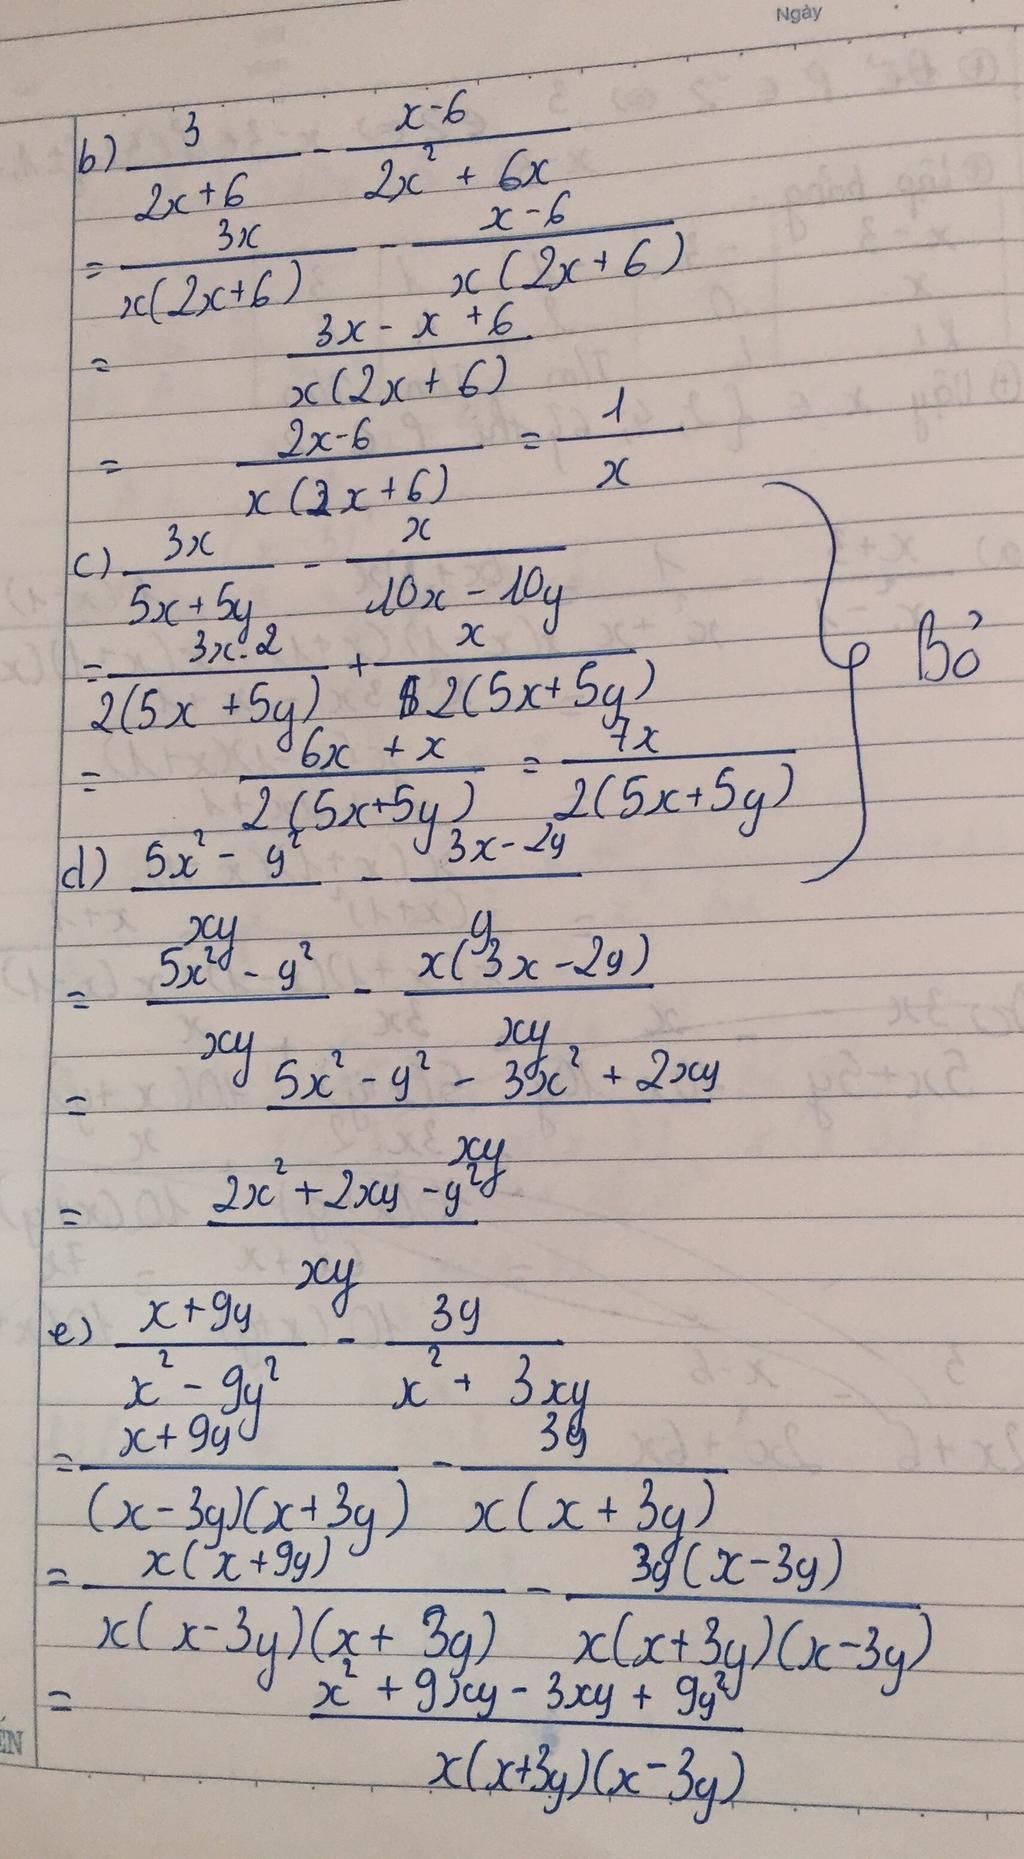 Ngày
b) 3/(2x+6) - (x-6)/(2x² + 6x)
= 3x/(x(2x+6)) - (x-6)/(x(2x+6))
= (3x - x + 6)/(x(2x+6))
= (2x-6)/(x(2x+6)) = 1/x
c) 3x/(5x+5y) - x/(10x-10y)
= (3x.2)/(2(5x+5y)) + x/(2(5x+5y))
= (6x + x)/(2(5x+5y)) = 7x/(2(5x+5y))
Bỏ
d) (5x² - y²)/(xy) - (3x-2y)/y
= (5x² - y²)/(xy) - (x(3x-2y))/(xy)
= (5x² - y² - 3x² + 2xy)/(xy)
= (2x² + 2xy - y²)/(xy)
e) (x+9y)/(x² - 9y²) - 3y/(x² + 3xy)
= (x+9y)/((x-3y)(x+3y)) - 3y/(x(x+3y))
= (x(x+9y))/(x(x-3y)(x+3y)) - (3y(x-3y))/(x(x+3y)(x-3y))
= (x² + 9xy - 3xy + 9y²)/(x(x+3y)(x-3y))
ẾN